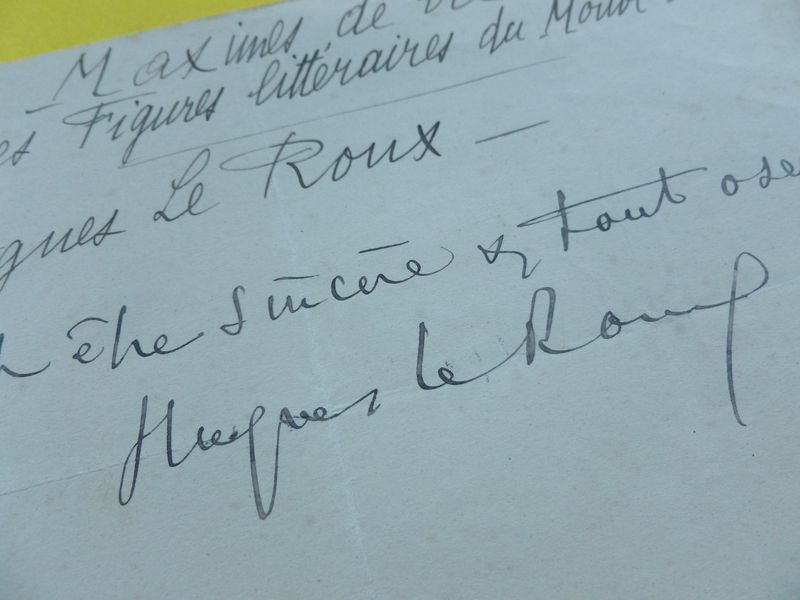 — Maximes, de
es Figures littéraires du
gues Le Roux —
être sincère & tout ose
Hugues Le Roux